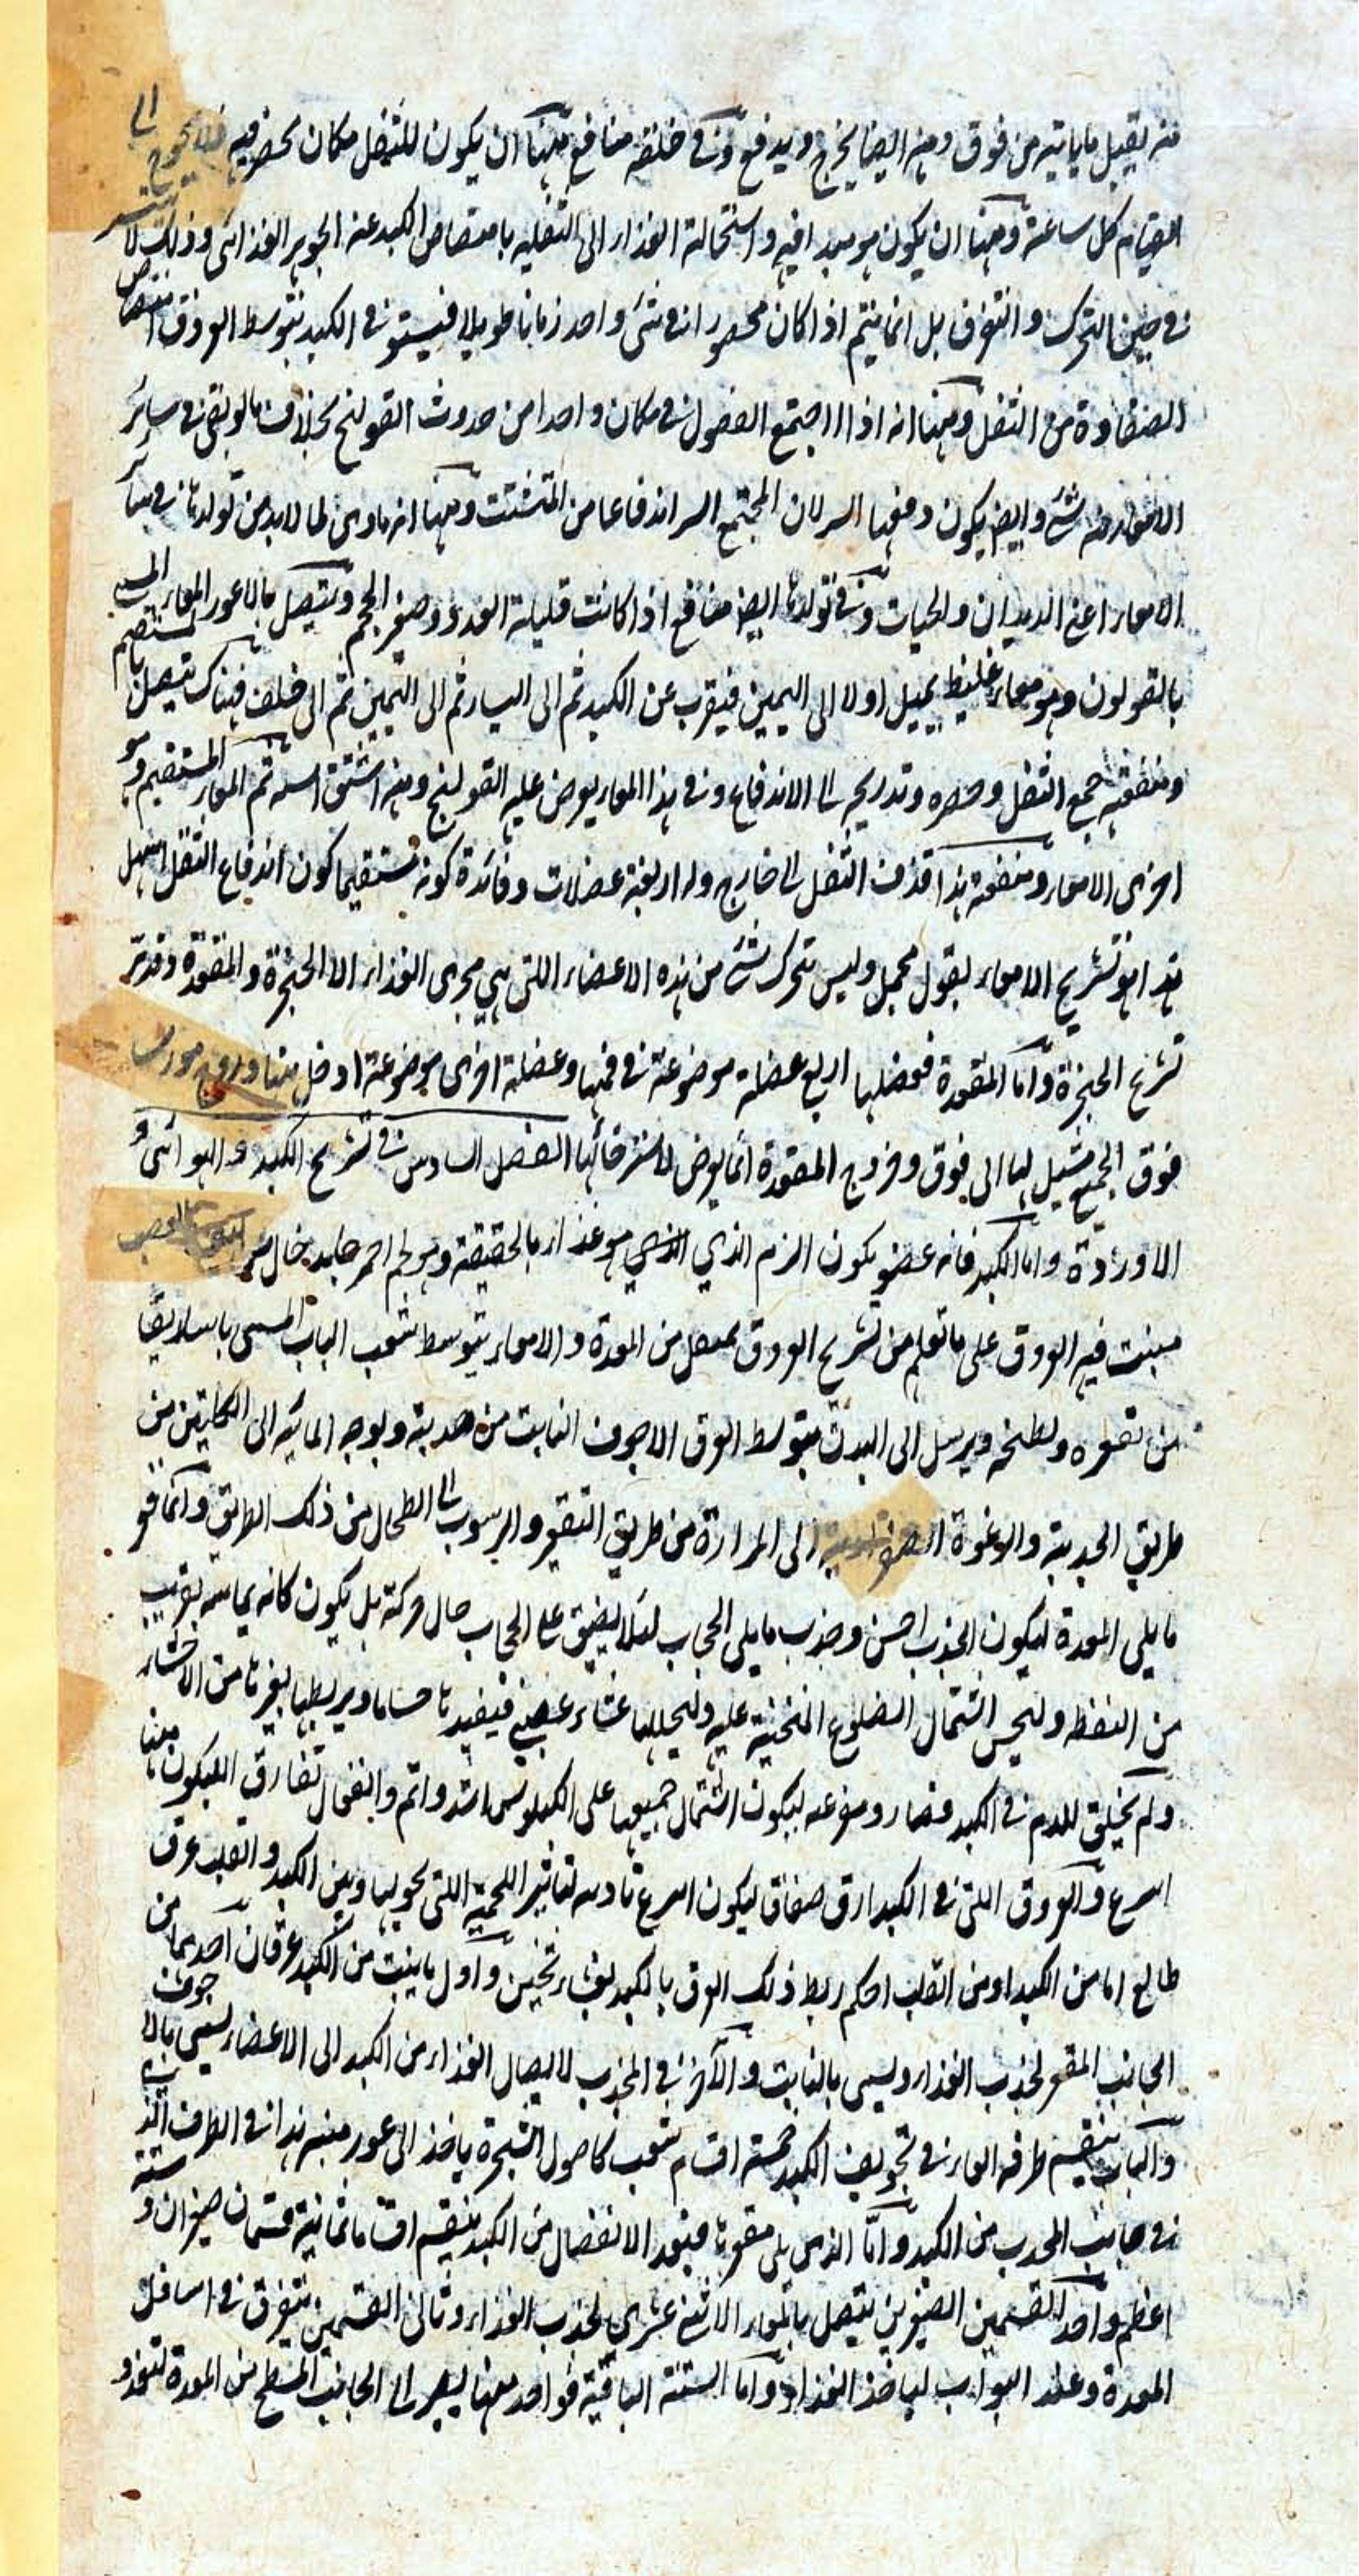 منه يقبل ما ياتيه من فوق ومنه ايضا يخرج ويدفع وفى خلقه منافع منها ان يكون للثفل مكان يحصر فيه فلا يحوج الى
القيام كل ساعة ومنها ان يكون هو مبدا فيه واستحالة الغذاء الى الثفلية بامتصاص الكبد عنه الجوهر الغذائى وذلك لا يتيسر
فى حين التحرك والتفرق بل انما يتم اذا كان محصورا فى شئ واحد زمانا طويلا فيستوفى الكبد بتوسط العروق امتصاص
من الثفل ومنها انه اذا اجتمع الفضول فى مكان واحد امن حدوث القولنج بخلاف ما لو بقى فى سائر
منه شئ وايضا يكون دفعها اليسر لان المجتمع ايسر اندفاعا من المتشتت ومنها انه ماوى لما لا بد من تولده فى هذا
الامعاء اعنى الديدان والحيات وفى تولدها ايضا منافع اذا كانت قليلة العدد وصغير الحجم ويتصل بالاعور المعاء المسمى
بالقولون وهو معاء غليظ يميل اولا الى اليمين فيقرب عن الكبد ثم الى اليسار ثم الى اليمين ثم الى خلف فهناك يتصل بالمستقيم
ومنفعته جمع الثفل وحصره وتدريجه الى الاندفاع وفى هذا المعاء يعرض عليه القولنج ومنه اشتق اسمه ثم المعاء المستقيم وهو
اخرى الامعاء ومنفعة هذا قذف الثفل الى خارج وله اربعة عضلات وفائدة كونه مستقيما كون اندفاع الثفل اسهل
هذا هو تشريح الامعاء بقول مجمل وليس يتحرك شئ من هذه الاعضاء اللتى هى مجرى الغذاء الا الحنجرة والمقعدة وقد مر
تشريح الحنجرة واما المقعدة فعضلها اربع عضلة موضوعة فى فمها وعضلة اخرى موضوعة ادخل منها وزوج مورب
فوق الجميع تشيل لها الى فوق وخروج المقعدة انما يعرض لاسترخائها الفصل السادس فى تشريح الكبد
واما الكبد فانه عضو يكون الدم الذي الذي هو غذاء بالحقيقة وهو لحم احمر جامد خال عن ليف العصب
ينبت فيه العروق على ما تعلم من تشريح العروق يمتص من المعدة والامعاء بتوسط شعب الباب المسمى باساريقا
من تقعره ويطبخه ويرسل الى البدن بتوسط العرق الاجوف النابت من حدبته ويوجه المائية الى الكليتين من
طريق الحدبة والرغوة الصفراوية الى المرارة من طريق التقعير والرسوب الى الطحال من ذلك الطريق وانما قعر
ما يلى المعدة ليكون الجذب احسن وحدب ما يلى الحجاب لئلا يضيق على الحجاب حال حركته بل يكون كانه يماسه بقريب
من النقطة وليحسن اشتمال الضلوع المنحنية عليه وليجللها غشاء عصبى فيفيدها حسا ما ويربطها بغيرها من الاحشاء
ولم يخلق للدم فى الكبد فضاء وسوغه ليكون اشتمال جميعها على الكيلوس اشد واتم وانفعال تفاريق الكيلوس منها
اسرع والعروق اللتى فى الكبد ارق صفاق ليكون اسرع تادية لتاثير اللحمية اللتى تحويها وبين الكبد والقلب عرق
طالع اما من الكبد او من القلب احكم ربط ذلك العرق بالكبد بغشاء ثخين واول ما ينبت من الكبد عرقان احدهما من
الجانب المقعر لجذب الغذاء ويسمى بالباب والآخر فى المحدب لايصال الغذاء من الكبد الى الاعضاء يسمى بالاجوف
والباب ينقسم طرفه الغائر فى تجويف الكبد خمسة اقسام تتشعب كاصول الشجرة ياخذ الى غور منبته هذا فى الطرف الذى
فى جانب المحدب من الكبد واما الذى يلى مقعرها فبعد الانفصال من الكبد ينقسم اقساما ثمانية قسمان صغيران وستة
اعظم واحد القسمين الصغيرين يتصل بالمعاء الاثنى عشرى لجذب الغذاء وثانى القسمين يتفرق فى اسافل
المعدة وعند البواب لياخذ الغذاء واما الستة الباقية فواحد منها يصير الى الجانب المسطح من المعدة لتغذو